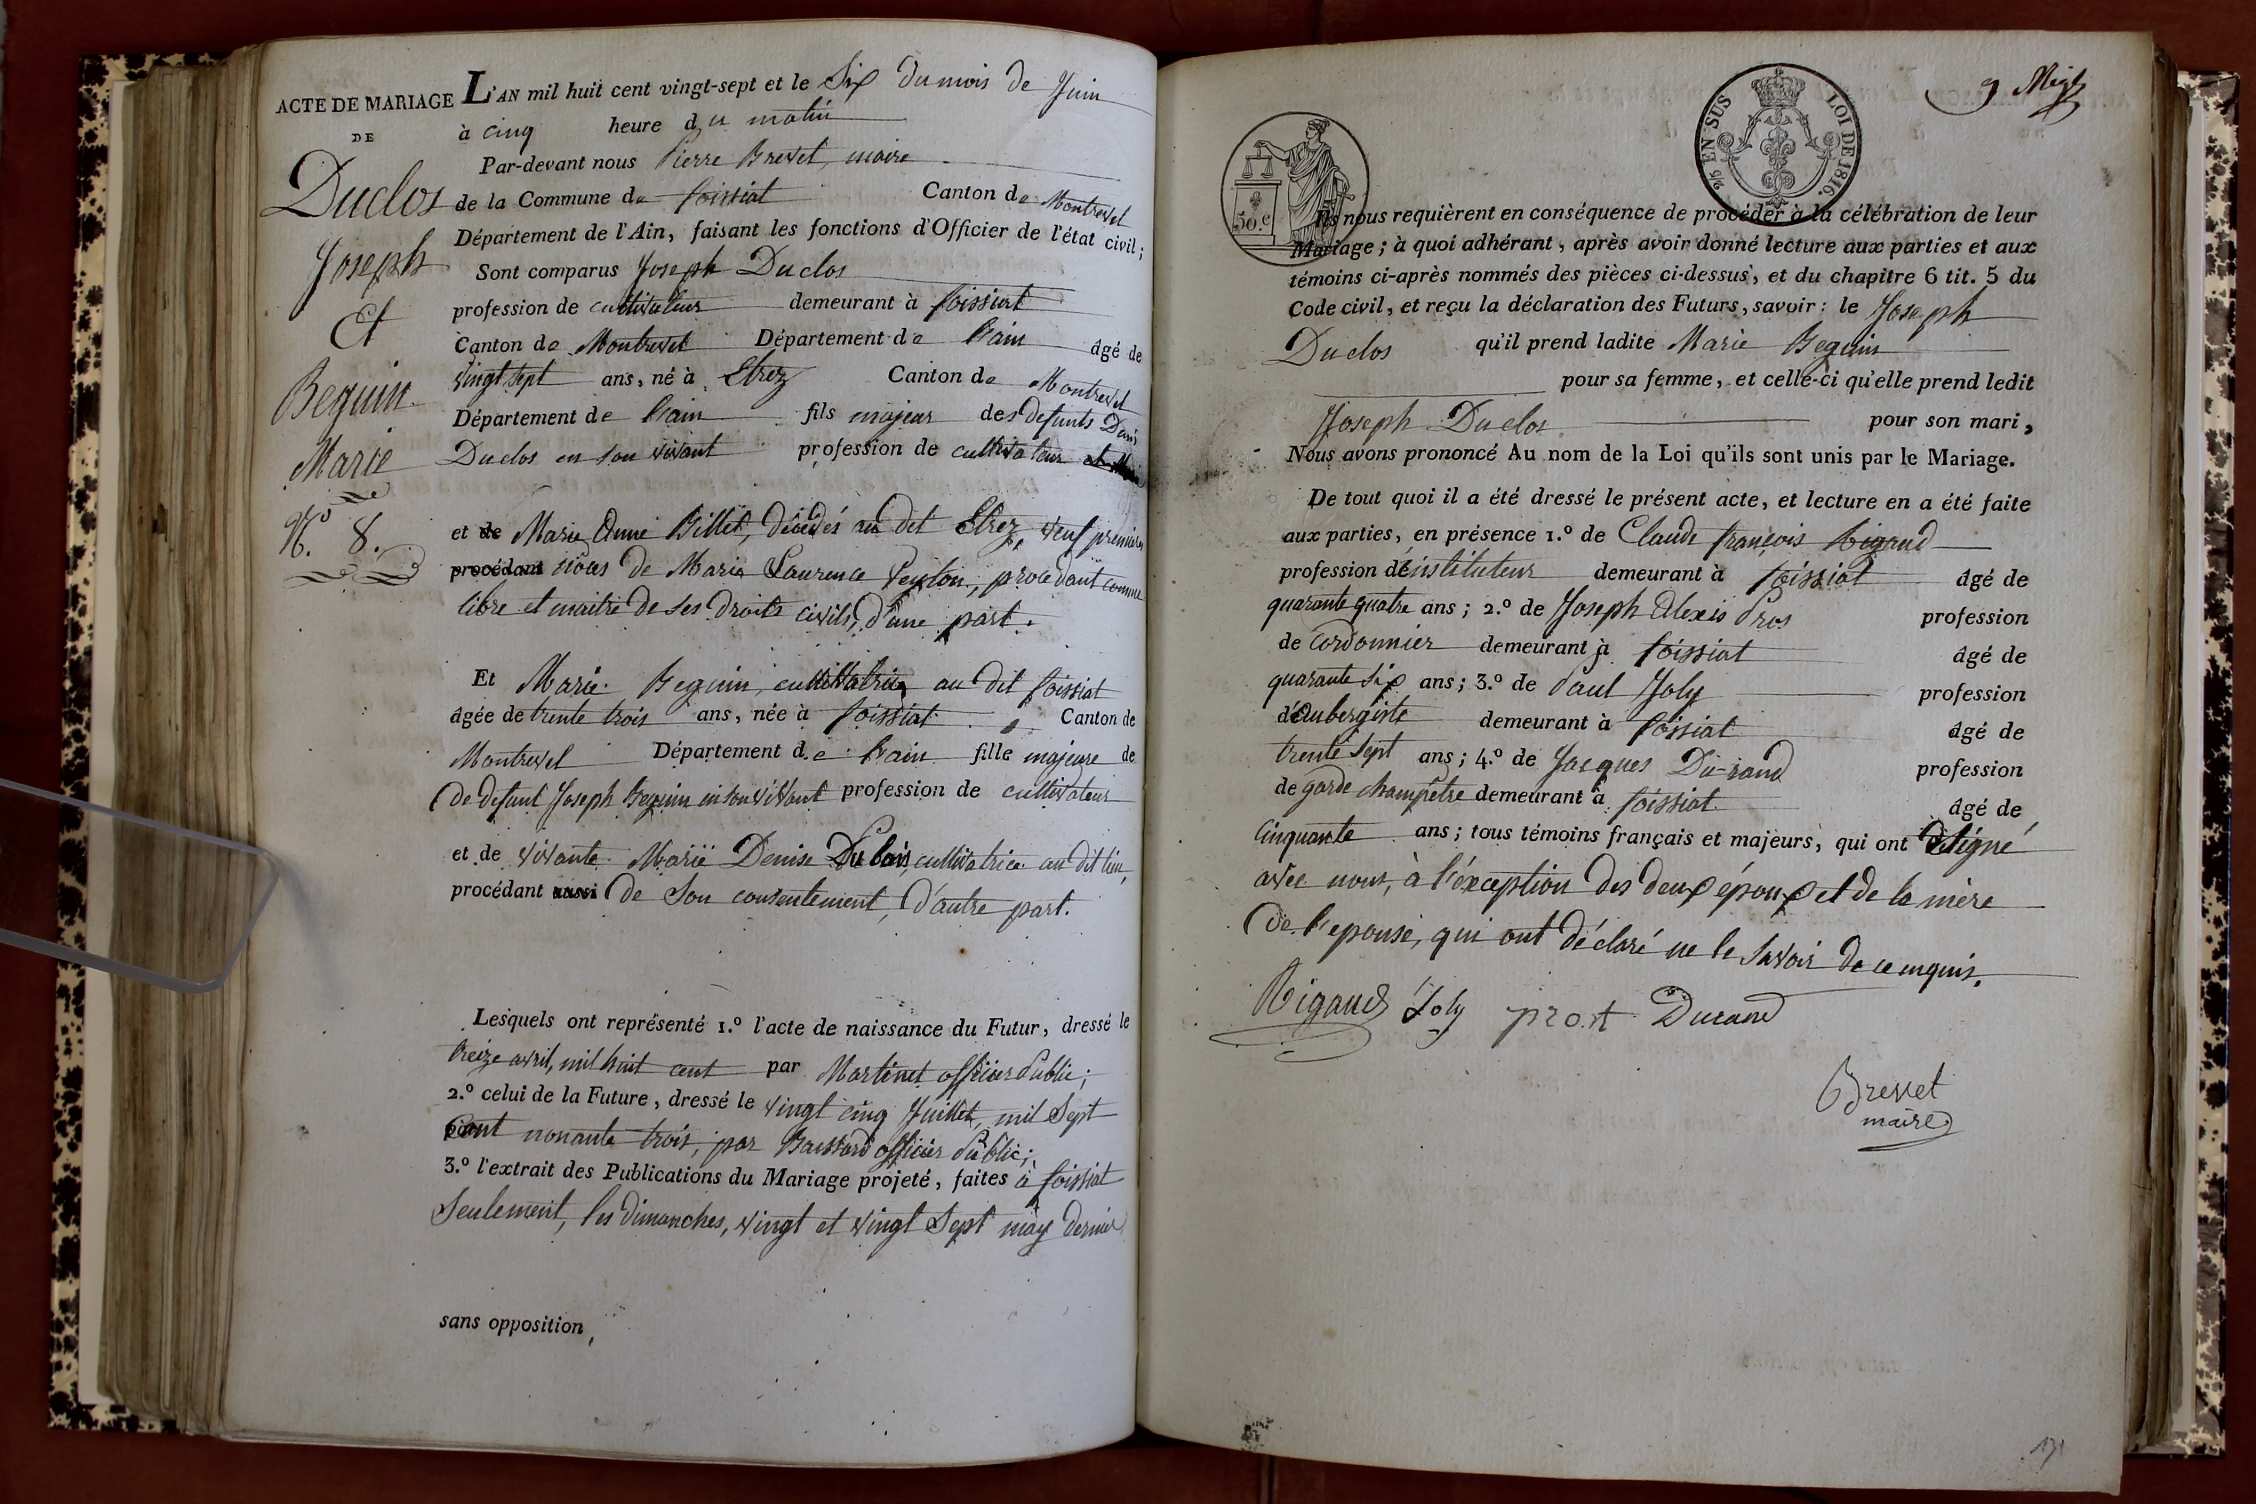 ACTE DE MARIAGE
DE
Duclos
Joseph
Et
Beguin
Marie
N.º 8.
L'AN mil huit cent vingt-sept et le Six du mois de Juin
à cinq heure du matin
Par-devant nous Pierre Brevet, maire
de la Commune de foissiat Canton de Montrevel
Département de l'Ain, faisant les fonctions d'Officier de l'état civil;
Sont comparus Joseph Duclos
profession de cultivateur demeurant à foissiat
Canton de Montrevel Département de l'ain âgé de
vingt sept ans, né à Etrez Canton de Montrevel
Département de l'ain fils majeur des defunts Denis
Duclos en son vivant profession de cultivateur
et de Marie Anne Billet, décédés au dit Etrez, veuf premières
procédant nôces de Marie Laurence Peylon, procedant comme
libre et maitre de ses droits civils, d'une part.
Et Marie Beguin, cultivatrice au dit foissiat
âgée de trente trois ans, née à foissiat Canton de
Montrevel Département de l'ain fille majeure de
de defunt Joseph Beguin en son vivant profession de cultivateur
et de vivante Marie Denise cultivatrice au dit lieu,
procédant aussi de son consentement, d'autre part.
Lesquels ont représenté 1.º l'acte de naissance du Futur, dressé le
treize avril, mil huit cent par Martinet officier Public;
2.º celui de la Future, dressé le vingt cinq Juillet, mil Sept
cent nonante trois, par officier Public;
3.º l'extrait des Publications du Mariage projeté, faites à foissiat
Seulement, les dimanches, vingt et vingt Sept may dernier
sans opposition,
9 
2/5 EN SUS LOI DE 1816.
50.c
Ils nous requièrent en conséquence de procéder à la célébration de leur
Mariage; à quoi adhérant, après avoir donné lecture aux parties et aux
témoins ci-après nommés des pièces ci-dessus, et du chapitre 6 tit. 5 du
Code civil, et reçu la déclaration des Futurs, savoir: le Joseph
Duclos qu'il prend ladite Marie Beguin
pour sa femme, et celle-ci qu'elle prend ledit
Joseph Duclos pour son mari,
Nous avons prononcé Au nom de la Loi qu'ils sont unis par le Mariage.
De tout quoi il a été dressé le présent acte, et lecture en a été faite
aux parties, en présence 1.º de Claude françois Rigaud
profession d'instituteur demeurant à foissiat âgé de
quarante quatre ans; 2.º de Joseph Alexis Pros profession
de Cordonnier demeurant à foissiat âgé de
quarante six ans; 3.º de Paul Joly profession
d'aubergiste demeurant à foissiat âgé de
trente sept ans; 4.º de Jacques Durand profession
de garde champêtre demeurant à foissiat âgé de
cinquante ans; tous témoins français et majeurs, qui ont signé
avec nous, à l'éxception des deux époux et de la mère
de l'epouse, qui ont déclaré ne le savoir de ce enquis.
Rigaud Joly prost Durand
Brevet
maire
131